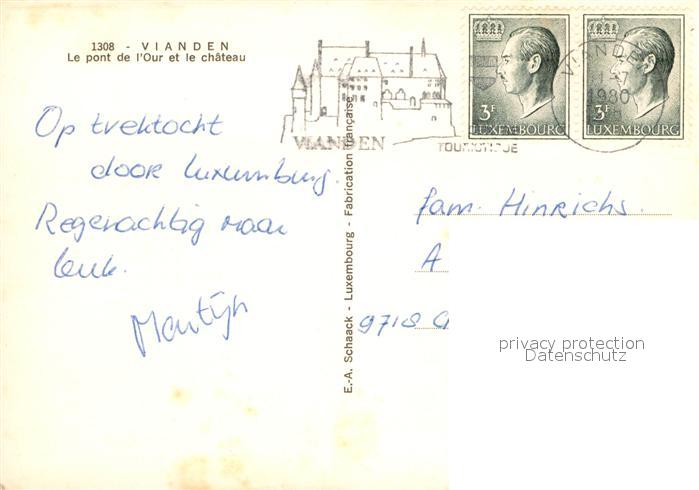 1308 - VIANDEN
Le pont de l'Our et le château
Op trektocht
door Luxemburg.
Regenachtig maar
leuk.
Martijn
E.-A. Schaack - Luxembourg - Fabrication française
VIANDEN
TOURISTIQUE
VIANDEN
1980
3F
LUXEMBOURG
3F
LUXEMBOURG
fam. Hinrichs.
A
9718 G
privacy protection
Datenschutz